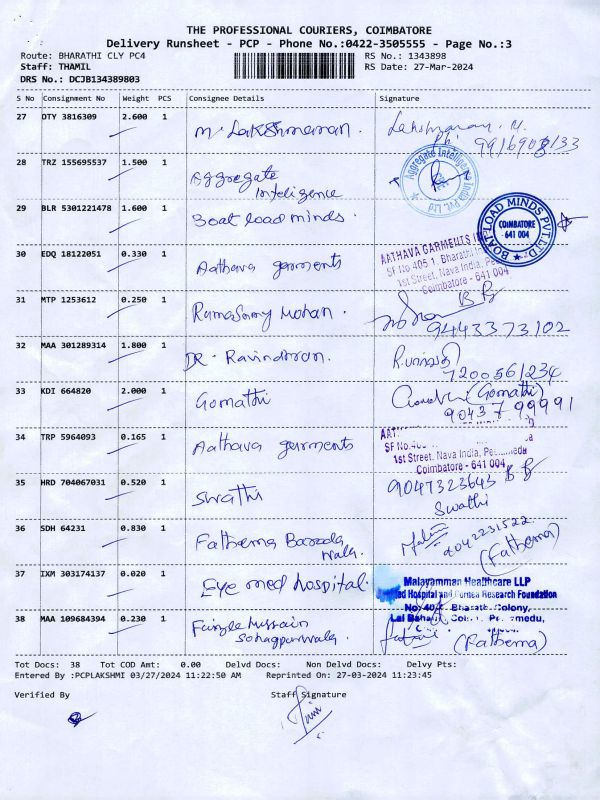 THE PROFESSIONAL COURIERS, COIMBATORE
Delivery Runsheet - PCP - Phone No.:0422-3505555 - Page No.:3
Route: BHARATHI CLY PC4 RS No.: 1343898
Staff: THAMIL RS Date: 27-Mar-2024
DRS No.: DCJB134389803
S No Consignment No Weight PCS Consignee Details Signature
27 DTY 3816309 2.600 1 M. Lakshmanan. Lakshmanan. M.
Ph:
28 TRZ 155695537 1.500 1 Aggregate
Inteligence
Aggregate Intelligence India Pvt. Ltd
29 BLR 5301221478 1.600 1 Boat load minds.
BOAT LOAD MINDS PVT. LTD
COIMBATORE
641 004
30 EDQ 18122051 0.330 1 Aathava garments
AATHAVA GARMENTS
SF No 405 1, Bharathi
1st Street, Nava India,
Coimbatore - 641 004
31 MTP 1253612 0.250 1 Ramasamy Mohan.
9443373102
32 MAA 301289314 1.800 1 DR. Ravindran.
7200561234
33 KDI 664820 2.000 1 Gomathi (Gomathi)
90437 99991
34 TRP 5964093 0.165 1 Aathava garments
1st Street, Nava India,
Coimbatore - 641 004
35 HRD 704067031 0.520 1 Swathi 9047323643
Swathi
36 SDH 64231 0.830 1 Fathema Baroda
wala.
(Fathema)
37 IXM 303174137 0.020 1 Eye med hospital.
Malayamman Healthcare LLP
Hospital and Cornea Research Foundation
38 MAA 109684394 0.230 1 Fazle Hussain
Sohagpurwala.
(Fathema)
Tot Docs: 38 Tot COD Amt: 0.00 Delvd Docs: Non Delvd Docs: Delvy Pts:
Entered By :PCPLAKSHMI 03/27/2024 11:22:50 AM Reprinted On: 27-03-2024 11:23:45
Verified By Staff Signature